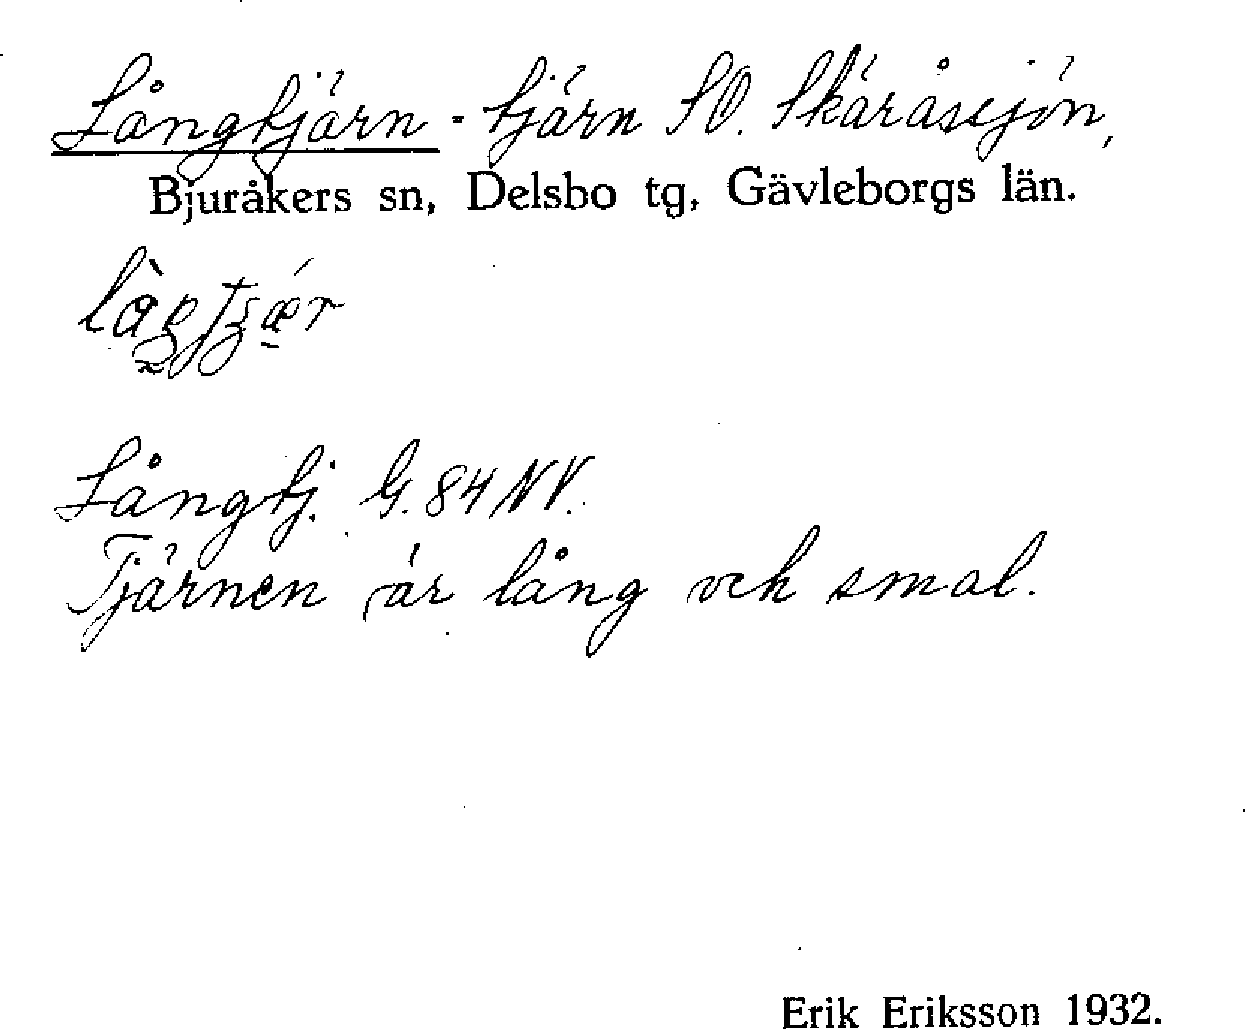 Långtjärn - tjärn SO. Skäråsejön,
Bjuråkers sn, Delsbo tg, Gävleborgs län.
Långtj. G. 84 NV.
Tjärnen är lång och smal.
Erik Eriksson 1932.